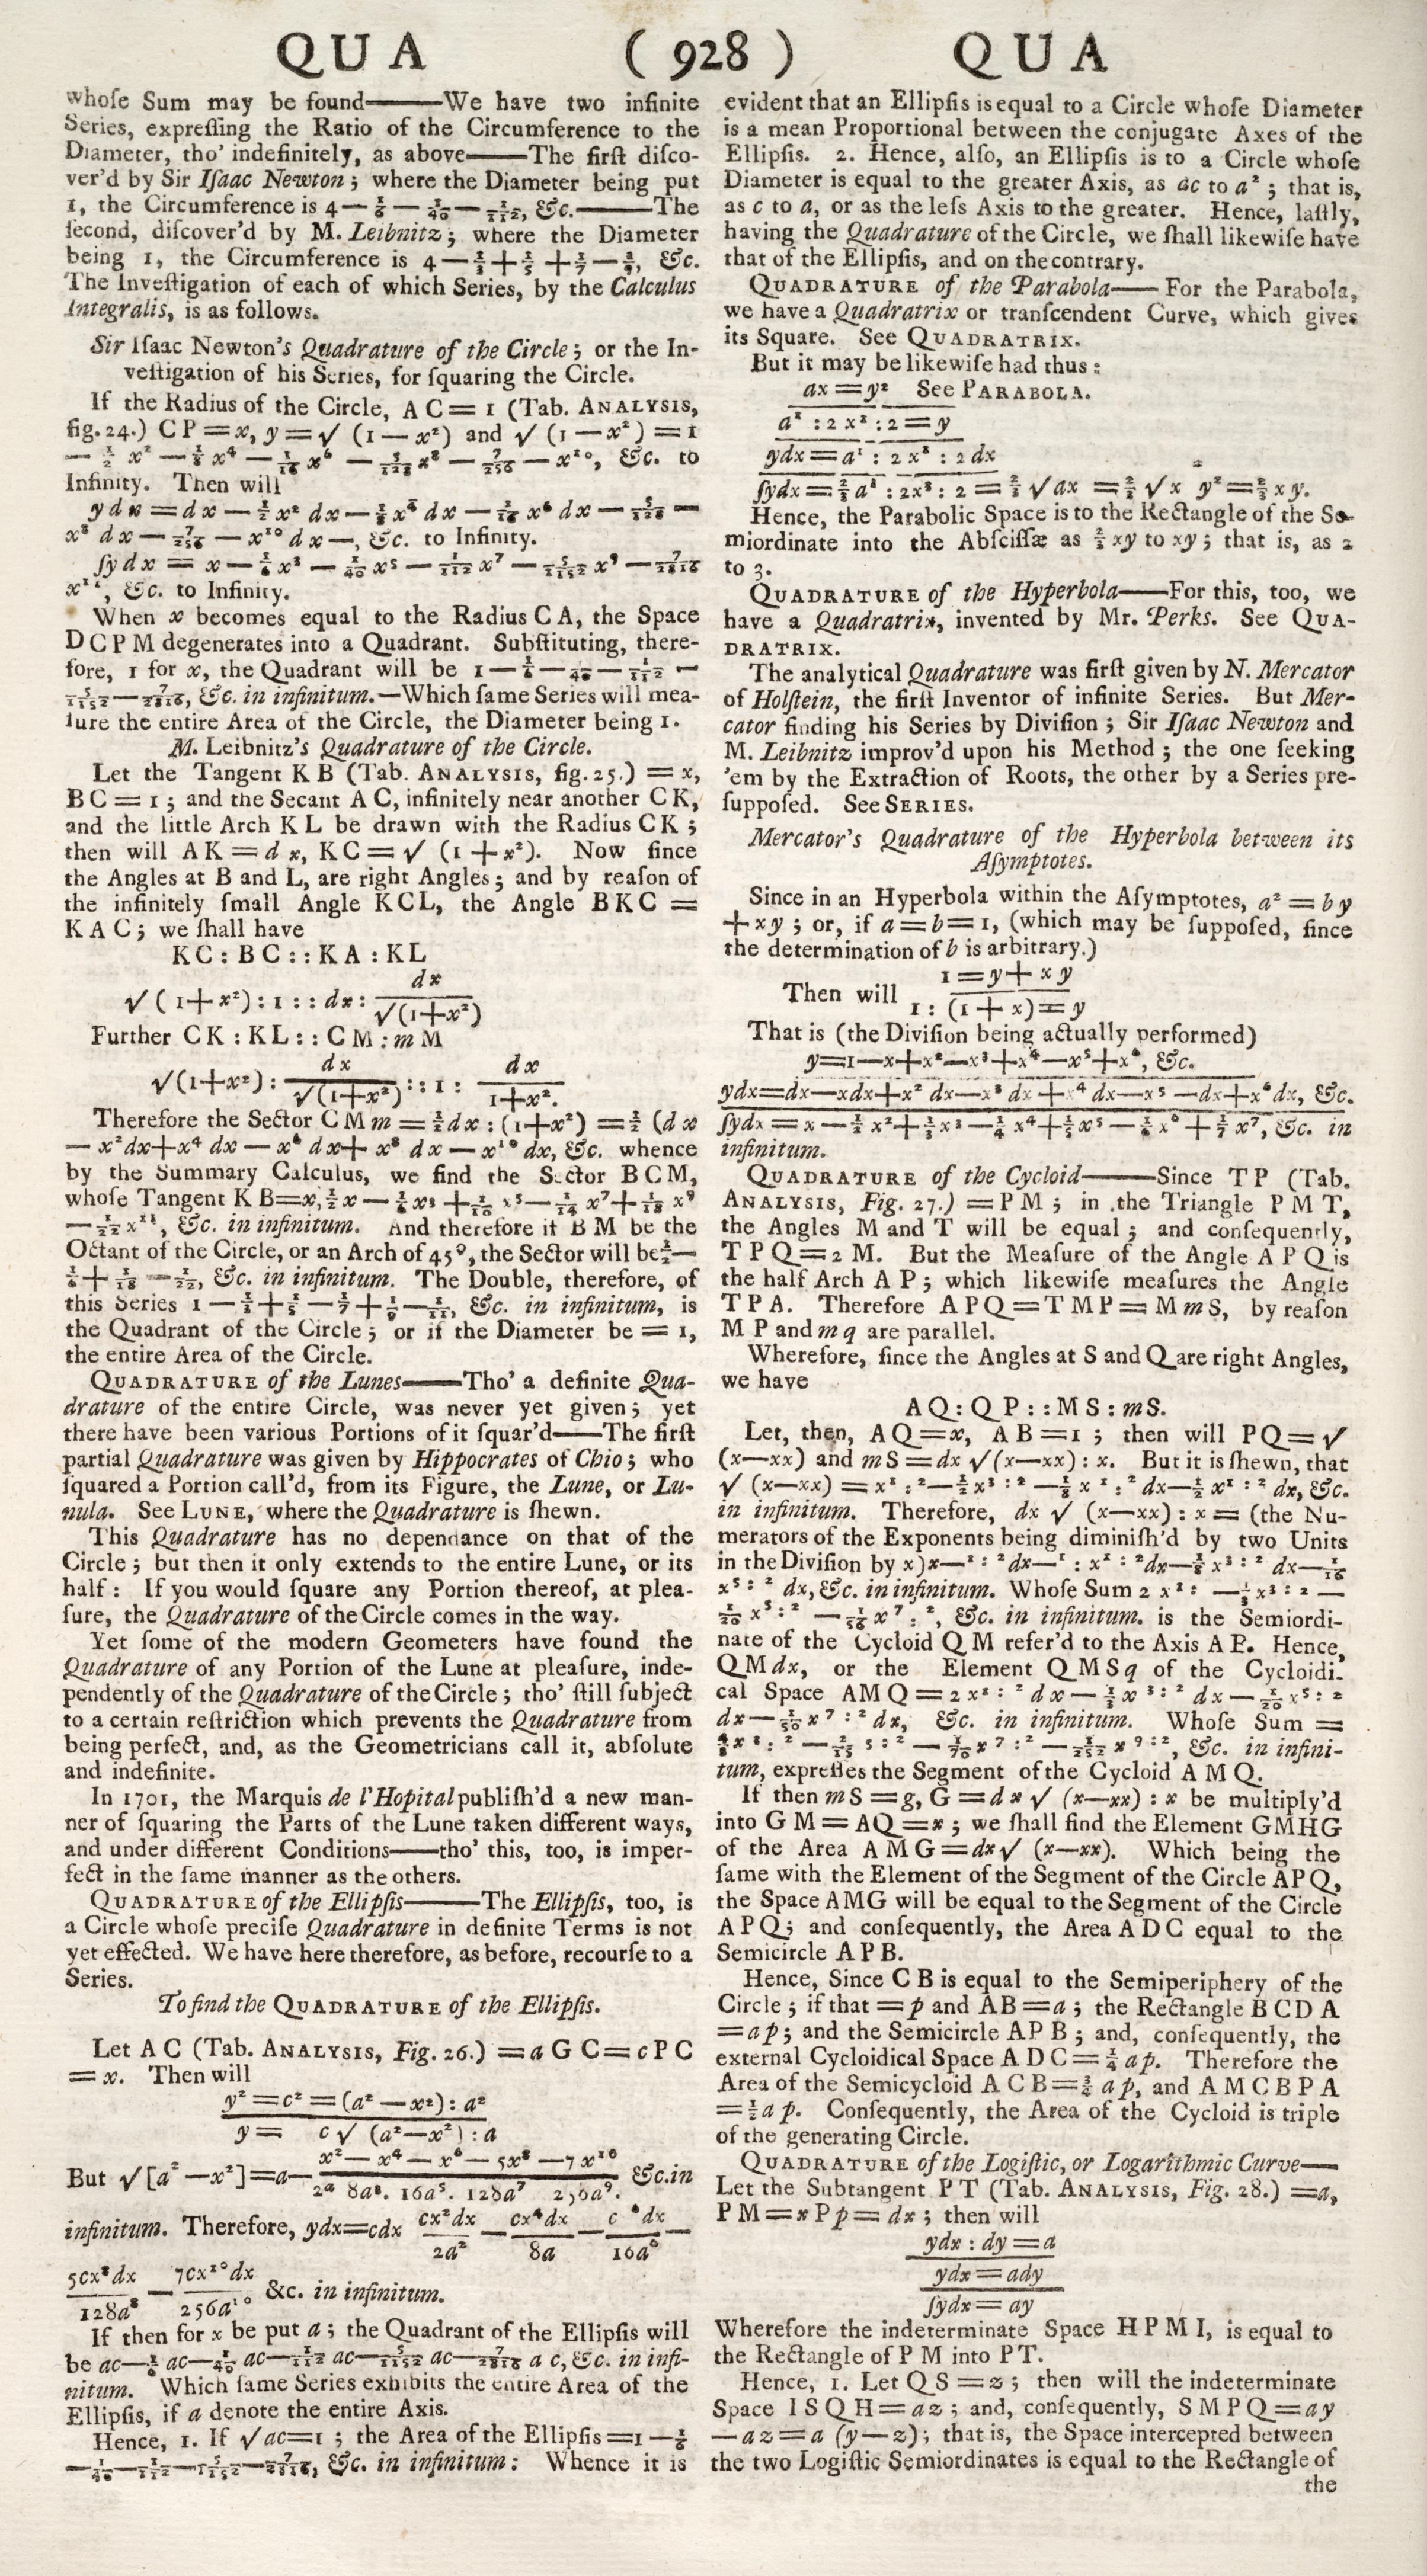 QUA ( 928 ) QUA
whoſe Sum may be found——We have two infinite
Series, expreſſing the Ratio of the Circumference to the
Diameter, tho' indefinitely, as above——The firſt diſco-
ver'd by Sir Iſaac Newton; where the Diameter being put
1, the Circumference is 4 — 1/6 — 1/40 — 1/112, &c.——The
ſecond, diſcover'd by M. Leibnitz; where the Diameter
being 1, the Circumference is 4 — 1/3 + 1/5 + 1/7 — 1/9, &c.
The Inveſtigation of each of which Series, by the Calculus
Integralis, is as follows.
Sir Iſaac Newton's Quadrature of the Circle; or the In-
veſtigation of his Series, for ſquaring the Circle.
If the Radius of the Circle, A C = 1 (Tab. ANALYSIS,
fig. 24.) C P = x, y = √ (1 — x²) and √ (1 — x²) = 1
— 1/2 x² — 1/8 x⁴ — 1/16 x⁶ — 5/128 x⁸ — 7/256 — x¹⁰, &c. to
Infinity. Then will
y d x = d x — 1/2 x² dx — 1/8 x⁴ dx — 1/16 x⁶ dx — 5/128 —
x⁸ dx — 7/256 — x¹⁰ dx —, &c. to Infinity.
ſy dx = x — 1/6 x³ — 1/40 x⁵ — 1/112 x⁷ — 5/1152 x⁹ — 7/2816
x¹¹, &c. to Infinity.
When x becomes equal to the Radius C A, the Space
D C P M degenerates into a Quadrant. Subſtituting, there-
fore, 1 for x, the Quadrant will be 1 — 1/6 — 1/40 — 1/112 —
5/1152 — 7/2816, &c. in infinitum.—Which ſame Series will mea-
ſure the entire Area of the Circle, the Diameter being 1.
M. Leibnitz's Quadrature of the Circle.
Let the Tangent K B (Tab. ANALYSIS, fig. 25.) = x,
B C = 1; and the Secant A C, infinitely near another C K,
and the little Arch K L be drawn with the Radius C K;
then will A K = d x, K C = √ (1 + x²). Now ſince
the Angles at B and L, are right Angles; and by reaſon of
the infinitely ſmall Angle K C L, the Angle B K C =
K A C; we ſhall have
K C : B C : : K A : K L
√ ( 1 + x²) : 1 : : dx : dx/√(1+x²)
Further C K : K L : : C M : m M
√(1+x²) : dx/√(1+x²) : : 1 : dx/1+x².
Therefore the Sector C M m = 1/2 dx : (1+x²) = 1/2 (d x
— x² dx + x⁴ dx — x⁶ dx + x⁸ dx — x¹⁰ dx, &c. whence
by the Summary Calculus, we find the Sector B C M,
whoſe Tangent K B = x, 1/2 x — 1/6 x³ + 1/10 x⁵ — 1/14 x⁷ + 1/18 x⁹
— 1/22 x¹¹, &c. in infinitum. And therefore if B M be the
Octant of the Circle, or an Arch of 45°, the Sector will be 1/2 —
1/6 + 1/18 — 1/22, &c. in infinitum. The Double, therefore, of
this Series 1 — 1/3 + 1/5 — 1/7 + 1/9 — 1/11, &c. in infinitum, is
the Quadrant of the Circle; or if the Diameter be = 1,
the entire Area of the Circle.
QUADRATURE of the Lunes——Tho' a definite Qua-
drature of the entire Circle, was never yet given; yet
there have been various Portions of it ſquar'd——The firſt
partial Quadrature was given by Hippocrates of Chio; who
ſquared a Portion call'd, from its Figure, the Lune, or Lu-
nula. See LUNE, where the Quadrature is ſhewn.
This Quadrature has no dependance on that of the
Circle; but then it only extends to the entire Lune, or its
half: If you would ſquare any Portion thereof, at plea-
ſure, the Quadrature of the Circle comes in the way.
Yet ſome of the modern Geometers have found the
Quadrature of any Portion of the Lune at pleaſure, inde-
pendently of the Quadrature of the Circle; tho' ſtill ſubject
to a certain reſtriction which prevents the Quadrature from
being perfect, and, as the Geometricians call it, abſolute
and indefinite.
In 1701, the Marquis de l'Hopital publiſh'd a new man-
ner of ſquaring the Parts of the Lune taken different ways,
and under different Conditions——tho' this, too, is imper-
fect in the ſame manner as the others.
QUADRATURE of the Ellipſis——The Ellipſis, too, is
a Circle whoſe preciſe Quadrature in definite Terms is not
yet effected. We have here therefore, as before, recourſe to a
Series.
To find the QUADRATURE of the Ellipſis.
Let A C (Tab. ANALYSIS, Fig. 26.) = a G C = c P C
= x. Then will
y² = c² = (a² — x²) : a²
y = c √ (a²—x²) : a
But √ [a² — x²] = a — x² — x⁴ — x⁶ — 5x⁸ — 7 x¹⁰ / 2a 8a³. 16a⁵. 128a⁷ 256a⁹. &c. in
infinitum. Therefore, ydx = cdx cx²dx/2a² — cx⁴dx/8a — c ⁶dx/16a⁶ —
5cx⁸dx/128a⁸ — 7cx¹⁰dx/256a¹⁰ &c. in infinitum.
If then for x be put a; the Quadrant of the Ellipſis will
be ac — 1/6 ac — 1/40 ac — 1/112 ac — 5/1152 ac — 7/2816 a c, &c. in infi-
nitum. Which ſame Series exhibits the entire Area of the
Ellipſis, if a denote the entire Axis.
Hence, 1. If √ ac = 1; the Area of the Ellipſis = 1 — 1/6
— 1/40 — 1/112 — 5/1152 — 7/2816, &c. in infinitum: Whence it is
evident that an Ellipſis is equal to a Circle whoſe Diameter
is a mean Proportional between the conjugate Axes of the
Ellipſis. 2. Hence, alſo, an Ellipſis is to a Circle whoſe
Diameter is equal to the greater Axis, as ac to a²; that is,
as c to a, or as the leſs Axis to the greater. Hence, laſtly,
having the Quadrature of the Circle, we ſhall likewiſe have
that of the Ellipſis, and on the contrary.
QUADRATURE of the Parabola—— For the Parabola,
we have a Quadratrix or tranſcendent Curve, which gives
its Square. See QUADRATRIX.
But it may be likewiſe had thus:
ax = y² See PARABOLA.
a¹ : 2 x¹ : 2 = y
ydx = a¹ : 2 x¹ : 2 dx
ſydx = 2/3 a¹ : 2x³ : 2 = 2/3 √ ax = 2/3 √ x y² = 2/3 x y.
Hence, the Parabolic Space is to the Rectangle of the Se-
miordinate into the Abſciſſæ as 2/3 xy to xy; that is, as 2
to 3.
QUADRATURE of the Hyperbola——For this, too, we
have a Quadratrix, invented by Mr. Perks. See QUA-
DRATRIX.
The analytical Quadrature was firſt given by N. Mercator
of Holſtein, the firſt Inventor of infinite Series. But Mer-
cator finding his Series by Diviſion; Sir Iſaac Newton and
M. Leibnitz improv'd upon his Method; the one ſeeking
'em by the Extraction of Roots, the other by a Series pre-
ſuppoſed. See SERIES.
Mercator's Quadrature of the Hyperbola between its
Aſymptotes.
Since in an Hyperbola within the Aſymptotes, a² = b y
+ x y; or, if a = b = 1, (which may be ſuppoſed, ſince
the determination of b is arbitrary.)
1 = y + x y
Then will 1 : (1 + x) = y
That is (the Diviſion being actually performed)
y = 1 — x + x² — x³ + x⁴ — x⁵ + x⁶, &c.
ydx = dx — xdx + x² dx — x³ dx + x⁴ dx — x⁵ — dx + x⁶ dx, &c.
ſydx = x — 1/2 x² + 1/3 x³ — 1/4 x⁴ + 1/5 x⁵ — 1/6 x⁶ + 1/7 x⁷, &c. in
infinitum.
QUADRATURE of the Cycloid——Since T P (Tab.
ANALYSIS, Fig. 27.) = P M; in the Triangle P M T,
the Angles M and T will be equal; and conſequently,
T P Q = 2 M. But the Meaſure of the Angle A P Q is
the half Arch A P; which likewiſe meaſures the Angle
T P A. Therefore A P Q = T M P = M m S, by reaſon
M P and m q are parallel.
Wherefore, ſince the Angles at S and Q are right Angles,
we have
A Q : Q P : : M S : m S.
Let, then, A Q = x, A B = 1; then will P Q = √
(x—xx) and m S = dx √ (x—xx) : x. But it is ſhewn, that
√ (x—xx) = x¹ : ² — 1/2 x³ : ² — 1/8 x ⁵ : ² dx — 1/2 x¹ : ² dx, &c.
in infinitum. Therefore, dx √ (x—xx) : x = (the Nu-
merators of the Exponents being diminiſh'd by two Units
in the Diviſion by x) x—¹ : ² dx—¹ : x¹ : ² dx — 1/8 x³ : ² dx — 1/16
x⁵ : ² dx, &c. in infinitum. Whoſe Sum 2 x¹ : — 1/3 x³ : 2 —
1/20 x⁵ : ² — 1/56 x ⁷ : ², &c. in infinitum. is the Semiordi-
nate of the Cycloid Q M refer'd to the Axis A P. Hence,
Q M dx, or the Element Q M S q of the Cycloidi-
cal Space AMQ = 2 x¹ : ² dx — 1/3 x ³ : ² dx — 1/20 x⁵ : ²
dx — 1/50 x ⁷ : ² dx, &c. in infinitum. Whoſe Sum =
4/3 x ³ : ² — 2/15 ⁵ : ² — 1/70 x ⁷ : ² — 1/252 x ⁹ : ², &c. in infini-
tum, expreſſes the Segment of the Cycloid A M Q.
If then m S = g, G = d x √ (x—xx) : x be multiply'd
into G M = AQ = x; we ſhall find the Element GMHG
of the Area A M G = dx √ (x—xx). Which being the
ſame with the Element of the Segment of the Circle APQ,
the Space AMG will be equal to the Segment of the Circle
A P Q; and conſequently, the Area A D C equal to the
Semicircle A P B.
Hence, Since C B is equal to the Semiperiphery of the
Circle; if that = p and AB = a; the Rectangle B C D A
= a p; and the Semicircle A P B; and, conſequently, the
external Cycloidical Space A D C = 1/4 ap. Therefore the
Area of the Semicycloid A C B = 3/4 a p, and A M C B P A
= 1/2 a p. Conſequently, the Area of the Cycloid is triple
of the generating Circle.
QUADRATURE of the Logiſtic, or Logarithmic Curve—
Let the Subtangent P T (Tab. ANALYSIS, Fig. 28.) = a,
P M = x P p = dx; then will
ydx : dy = a
ydx = ady
ſydx = ay
Wherefore the indeterminate Space H P M I, is equal to
the Rectangle of P M into P T.
Hence, 1. Let Q S = z; then will the indeterminate
Space I S Q H = a z; and, conſequently, S M P Q = a y
— a z = a (y — z); that is, the Space intercepted between
the two Logiſtic Semiordinates is equal to the Rectangle of
the